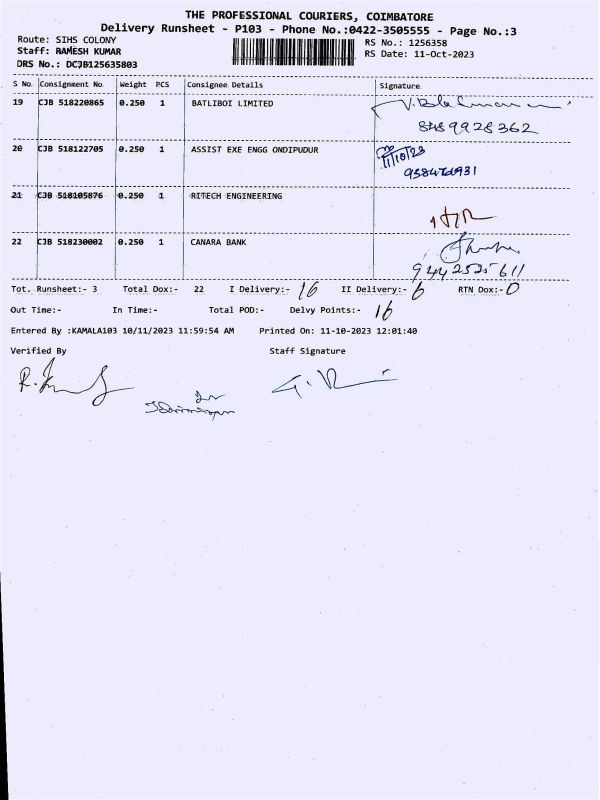 THE PROFESSIONAL COURIERS, COIMBATORE
Delivery Runsheet - P103 - Phone No.:0422-3505555 - Page No.:3
Route: SIHS COLONY
RS No.: 1256358
Staff: RAMESH KUMAR
RS Date: 11-Oct-2023
DRS No.: DCJB125635803
S No Consignment No Weight PCS Consignee Details Signature
19 CJB 518220865 0.250 1 BATLIBOI LIMITED
8489928362
20 CJB 518122705 0.250 1 ASSIST EXE ENGG ONDIPUDUR
11/10/23
21 CJB 518105876 0.250 1 RITECH ENGINEERING
22 CJB 518230002 0.250 1 CANARA BANK
9442525611
Tot. Runsheet:- 3 Total Dox:- 22 I Delivery:- 16 II Delivery:- 6 RTN Dox:- 0
Out Time:- In Time:- Total POD:- Delvy Points:- 16
Entered By :KAMALA103 10/11/2023 11:59:54 AM Printed On: 11-10-2023 12:01:40
Verified By Staff Signature